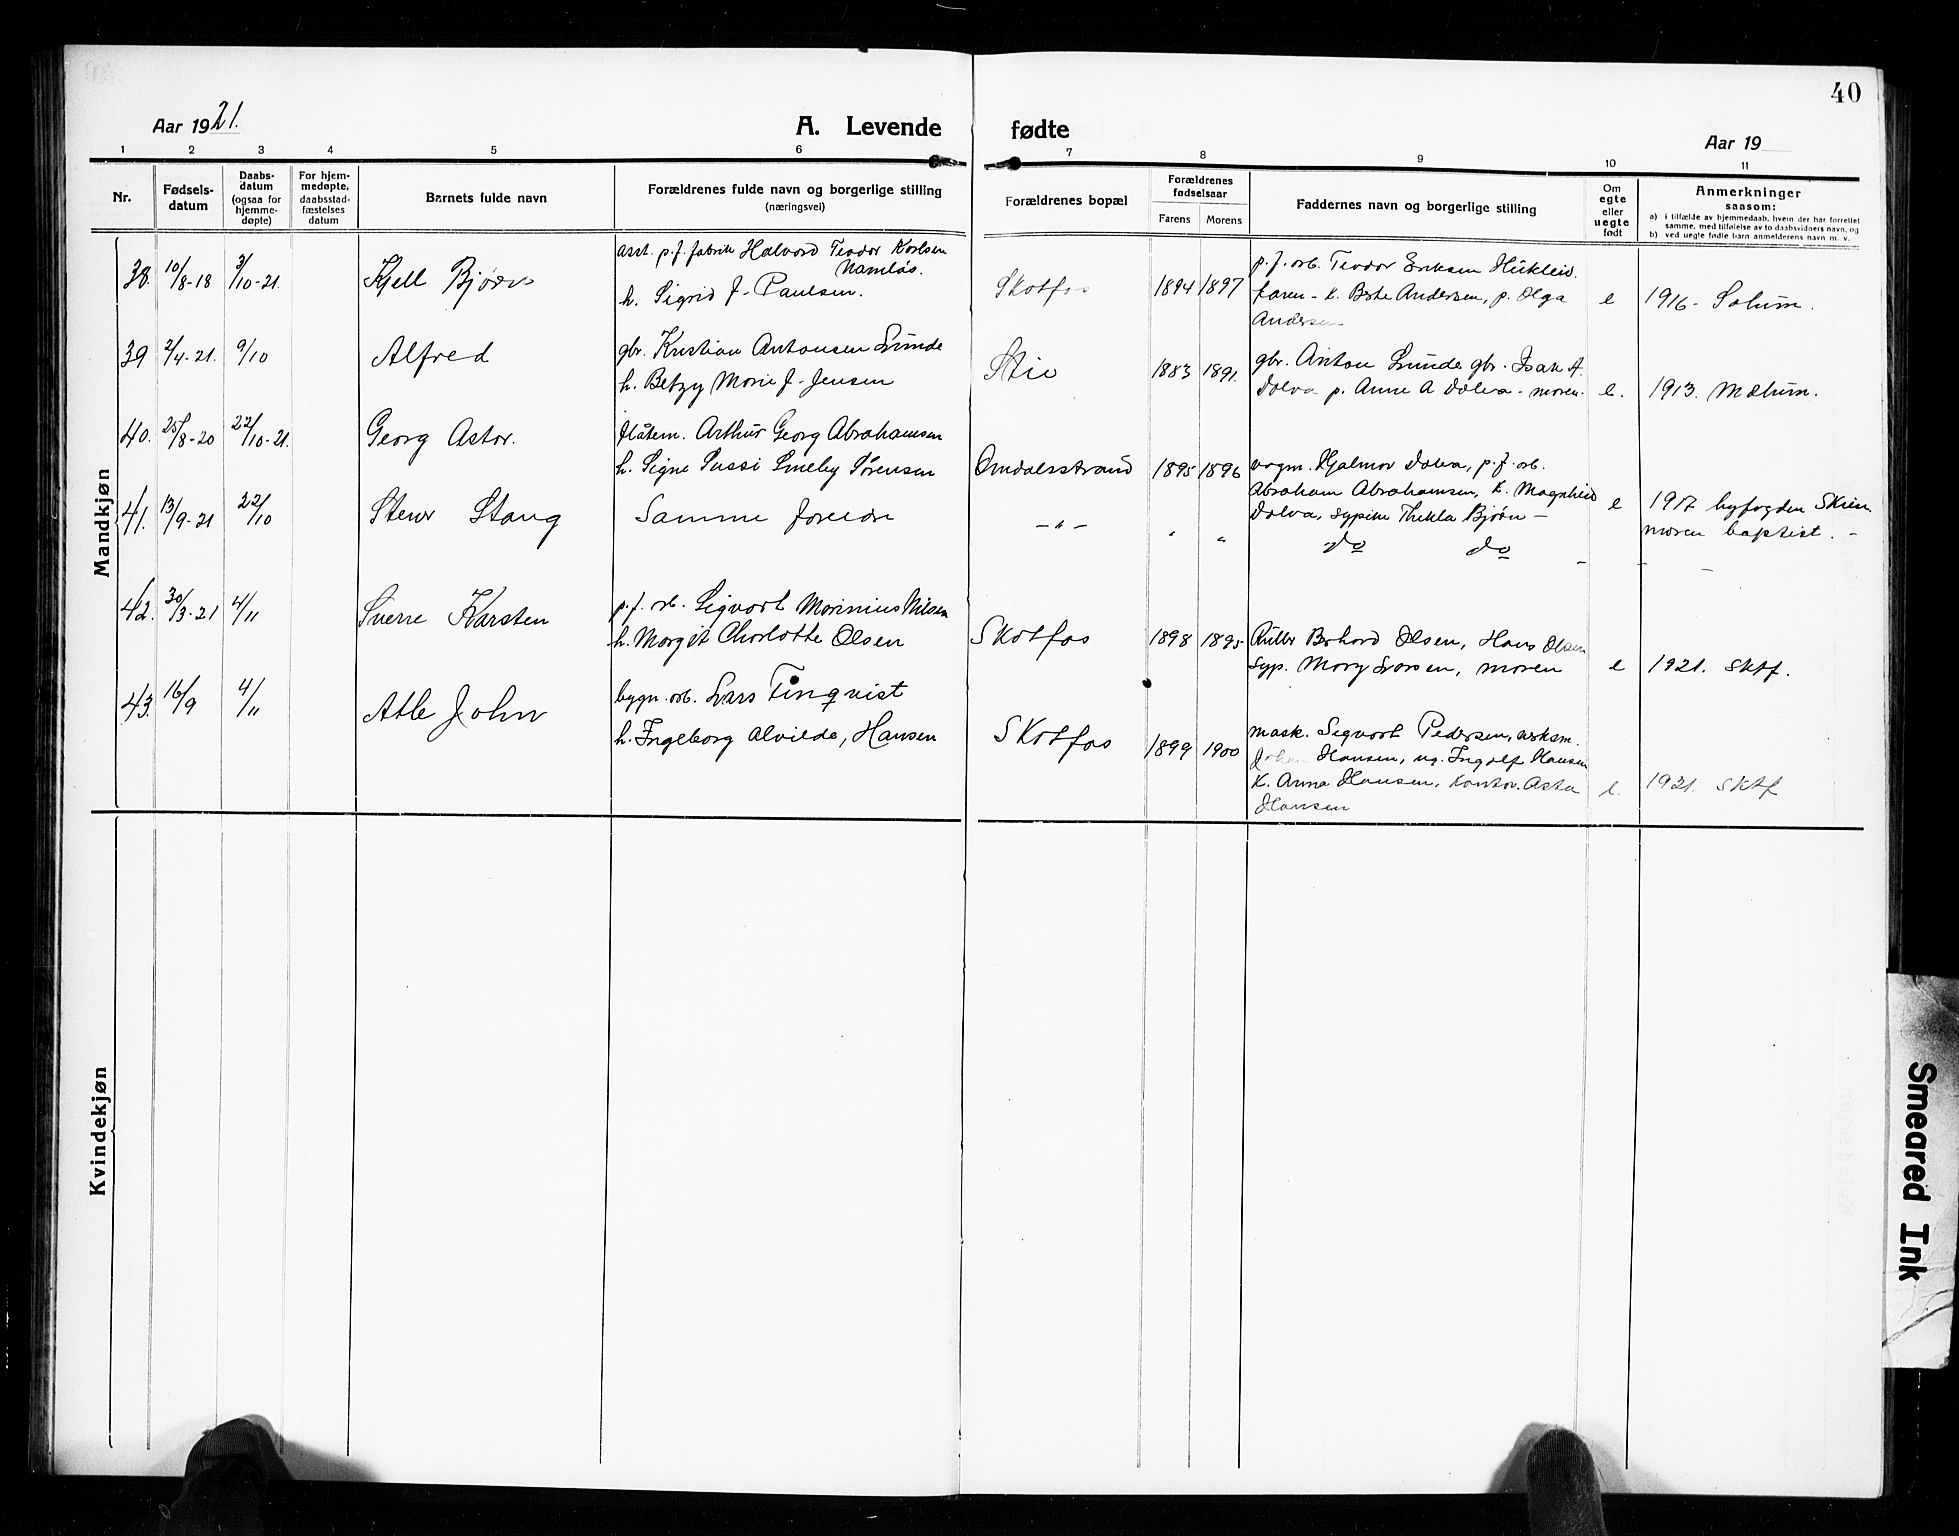 40
Aar 1921.
A. Levende
fødte
Aar 19
1 2 3 4 5 6
7 8 9 10 11
Nr.
Fødsels-
datum
Daabs-
datum
(ogsaa for
hjemme-
døpte)
For hjem-
medøpte,
daabsstad-
fæstelses
datum
Barnets fulde navn
Forældrenes fulde navn og borgerlige stilling
(næringsvei)
Forældrenes bopæl
Forældrenes
fødselsaar
Farens Morens
Faddernes navn og borgerlige stilling
Om
egte
eller
uegte
født
Anmerkninger
saasom:
a) i tilfælde av hjemmedaab, hvem der har forrettet
samme, med tilføielse av to daabsvidners navn, og
b) ved uegte fødte barn anmelderens navn m. v.
Mandkjøn
38. 10/8-18 3/10-21. Kjell Bjørn
asst. p.f. fabrik Halvord Teodor Karlsen
Namløs.
h. Sigrid J- Paulsen.
Skotfos 1894 1897
p.f. arb. Teodor Eriksen Hukleiv.
faren - k. Andersen, p. Olga
Andersen
e 1916 - Solum.
39 2/4-21. 9/10 Alfred
gbr. Kristian Antonsen Lunde
h. Betzy Marie J- Jensen
Stie 1883 1891.
gbr. Anton Lunde gbr. Isak A.
Dolva p. Anne A Dolva - moren.
e. 1913. Mælum.
40. 25/8-20 22/10-21. Georg Astor.
Arthur Georg Abrahamsen
h. Signe Sussi Smeby Sørensen
Omdalsstrand 1895 1896
vogm. Hjalmar Dolva, p.f. arb.
Abraham Abrahamsen, k. Magnhild
Dolva, sypike Thekla Bjørn -
e 1917 byfogden Skien.
moren baptist. -
41. 13/9-21 22/10 Stener Stang
Samme foreldre
- " - " "
do do - - -
42. 30/3-21 4/11 Sverre Karsten
p.f. arb. Sigvart Marinius Nilsen
h. Margit Charlotte Olsen
Skotfos 1898 1895
Olsen, Hans Olsen
syp. Mary Larsen, moren
e 1921. Sktf.
43. 16/9 4/11 Atle John
bygn. arb. Lars Tingvist
h. Ingeborg Alvilde, Hansen
Skotfos 1899 1900
mask. Sigvart Pedersen, verksm.
Johan Hansen, ug. Ingolf Hansen
k. Anna Hansen, kontor. Asta
Hansen
e. 1921. Sktf
Kvindekjøn
Smeared Ink